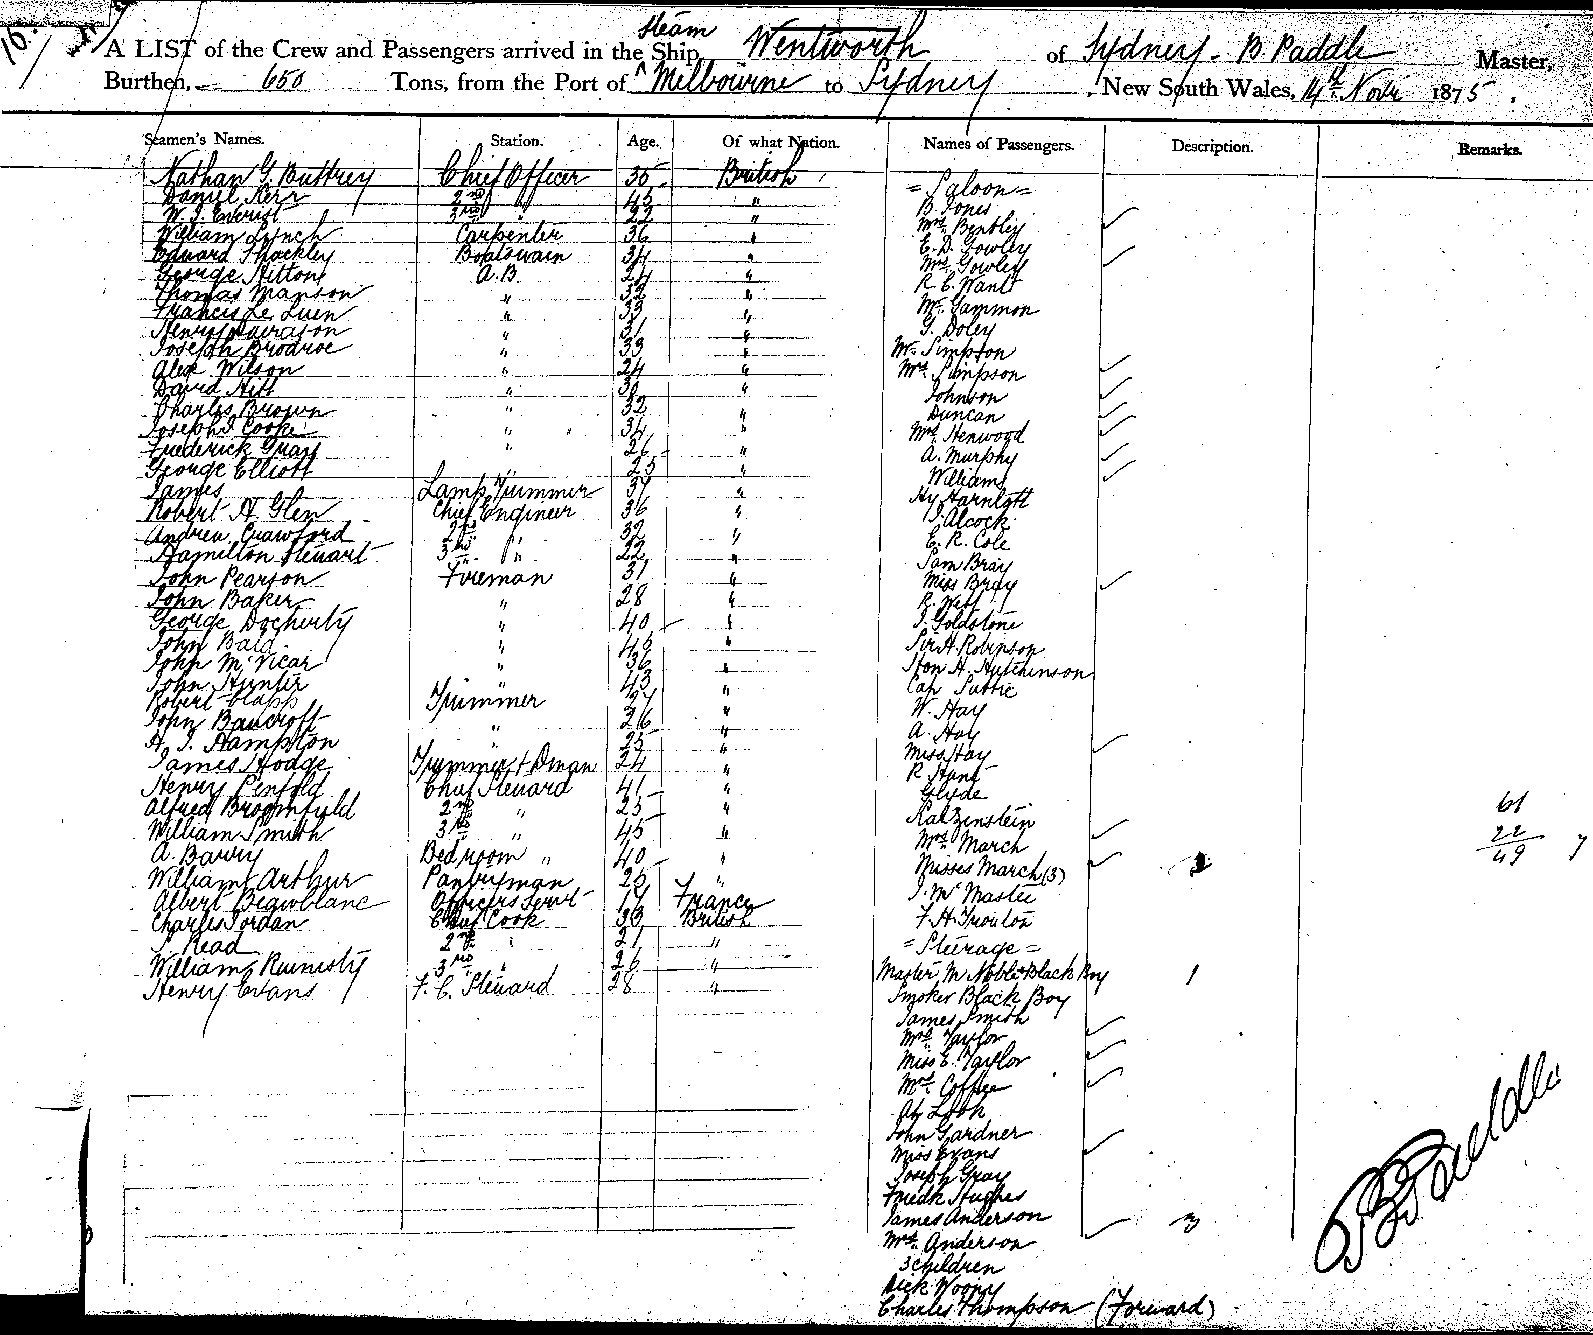 Steam
A LIST of the Crew and Passengers arrived in the Ship Wentworth of Sydney - B Paddle Master,
Burthen, 650 Tons, from the Port of Melbourne to Sydney New South Wales, 14th Novr 1875.
Seamen's Names. Station. Age. Of what Nation. Names of Passengers. Description. Remarks.
Nathan G. Buttrey Chief Officer 35 British
Daniel Kerr 2nd " 45 "
3rd " 22 "
William Lynch Carpenter 36 "
Edward Shackley Boatswain 34 "
George Hitton A.B. 24 "
Thomas Manson " 32 "
Francis Le Luen " 33 "
Henry " 31 "
Joseph Brodroe " 33 "
Alex Wilson " 24 "
David Hill " "
Charles Brown " 32 "
Joseph Cooke " 34 "
Frederick Gray " 26 "
George Elliott " 25 "
James Lamp Trimmer 37 "
Robert A Glen Chief Engineer 36 "
Andrew Crawford 2nd " 32 "
Hamilton Steuart 3rd " 22 "
John Pearson Fireman 31 "
John Baker " 28 "
George Docherty " 40 "
John Baid " 45 "
John McVicar " 36 "
John Hunter " 43 "
Robert Clapp Trimmer 27 "
John Bancroft " 26 "
A. J. Hampton " 25 "
James Hodge Trimmer & Dman 24 "
Henry Penfold Chief Steuard 41 "
Alfred Broomfield 2nd " 25 "
William Smith 3rd " 45 "
A. Barry Bedroom " 40 "
William Arthur Pantryman 25 "
Albert Beaublanc Officers Servt 17 France
Charles Jordan Chief Cook 33 British
Read 2nd " 21 "
William 3rd " 26 "
Henry Evans F. C. Steuard 28 "
= Saloon =
B Jones
Mrs Bentley
E. D. Gowley
Mrs Gowley
R E. Want
Mr Gammon
G. Doley
Mr Simpson
Mrs Simpson
Johnson
Duncan
Mrs Henwood
A. Murphy
Williams
Hy Harnlott
J. Alcock
E. R. Cole
Sam Bray
Miss Bray
R. West
J. Goldstone
Sir H. Robinson
Hon H. Hutchinson
Cap Suttie
W. Hay
A. Hay
Miss Hay
R. Hunt
Glyde
Katzenstein
Mrs March
Misses March (3)
J. McMaster
F. H. Trouton
= Steerage =
Master M Noble & Black Boy 1
Smoker Black Boy
James Smith
Mrs Taylor
Miss E. Taylor
Mrs Coffee
Ah Look
John Gardner
Miss Evans
Joseph Gray
Fredk Hughes
James Anderson 3
Mrs Anderson
3 children
Dick Woony
Charles Thompson (Forward)
61
22
49
B Paddle